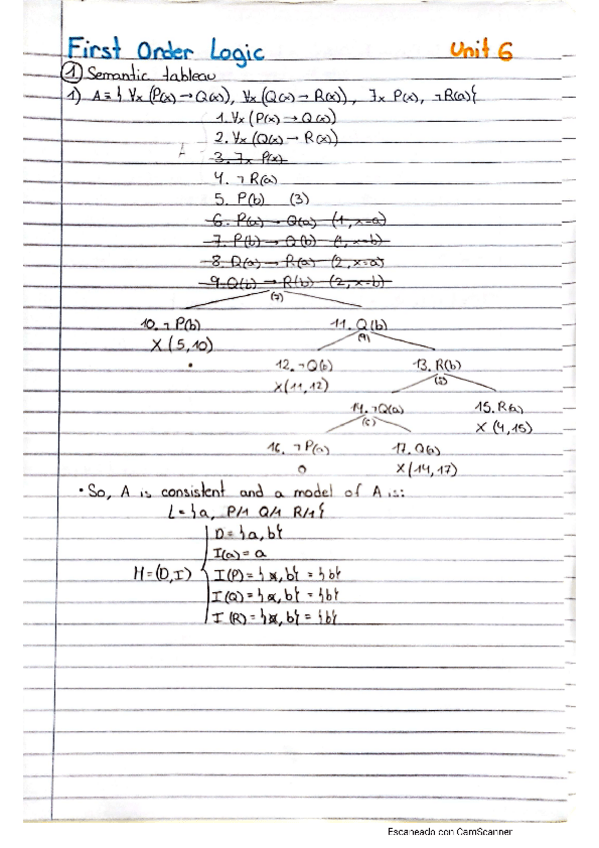 First Order Logic Unit 6
① Semantic tableau
1) A = { ∀x (P(x) → Q(x)), ∀x (Q(x) → R(x)), ∃x P(x), ¬R(a) }
1. ∀x (P(x) → Q(x))
2. ∀x (Q(x) → R(x))
3. ∃x P(x)
4. ¬R(a)
5. P(b) (3)
6. P(a) → Q(a) (1, x=a)
7. P(b) → Q(b) (1, x=b)
8. Q(a) → R(a) (2, x=a)
9. Q(b) → R(b) (2, x=b)
(7)
10. ¬P(b) 11. Q(b)
X (5,10) (9)
12. ¬Q(b) 13. R(b)
X (11,12) (8)
14. ¬Q(a) 15. R(a)
(6) X (4,15)
16. ¬P(a) 17. Q(a)
O X (14,17)
• So, A is consistent and a model of A is:
L = {a, P/1 Q/1 R/1}
D = {a, b}
I(a) = a
M = (D, I) I(P) = {a, b} = {b}
I(Q) = {a, b} = {b}
I(R) = {a, b} = {b}
Escaneado con CamScanner